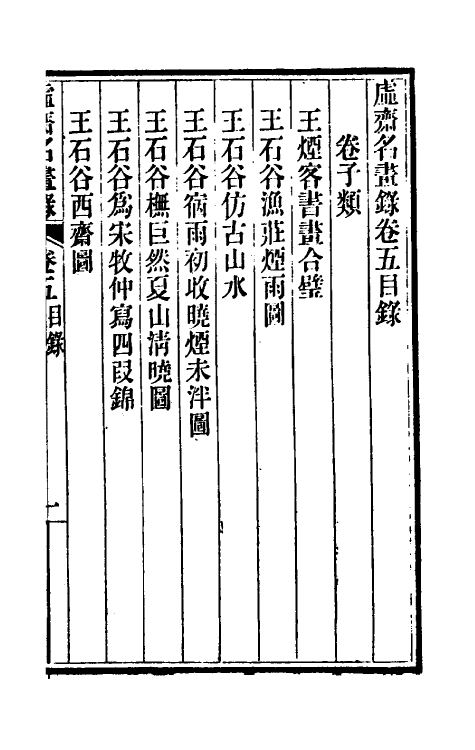 虛齋名畫錄卷五目錄
卷子類
王煙客書畫合璧
王石谷漁莊煙雨圖
王石谷仿古山水
王石谷宿雨初收曉煙未泮圖
王石谷橅巨然夏山清曉圖
王石谷爲宋牧仲寫四段錦
王石谷西齋圖
虛齋名畫錄 卷五目錄 一